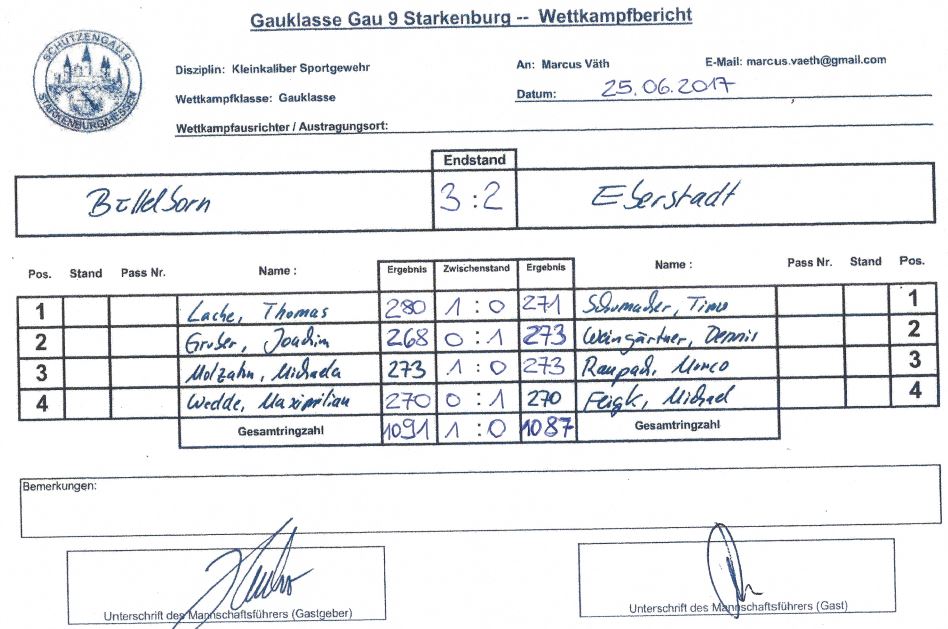 Gauklasse Gau 9 Starkenburg -- Wettkampfbericht
SCHÜTZENGAU 9
STARKENBURG/HESSEN
Disziplin: Kleinkaliber Sportgewehr
An: Marcus Väth
E-Mail: marcus.vaeth@gmail.com
Wettkampfklasse: Gauklasse
Datum: 25.06.2017
Wettkampfausrichter / Austragungsort:
Endstand
Büttelborn 3:2 Eberstadt
Pos. Stand Pass Nr. Name : Ergebnis Zwischenstand Ergebnis Name : Pass Nr. Stand Pos.
1 Lache, Thomas 280 1:0 271 Schumacher, Timo 1
2 Gruber, Joachim 268 0:1 273 Weingärtner, Dennis 2
3 Molzahn, Michaela 273 1:0 273 Raupach, Marco 3
4 Wedde, Maximilian 270 0:1 270 Feigk, Michael 4
Gesamtringzahl 1091 1:0 1087 Gesamtringzahl
Bemerkungen:
Unterschrift des Mannschaftsführers (Gastgeber)
Unterschrift des Mannschaftsführers (Gast)